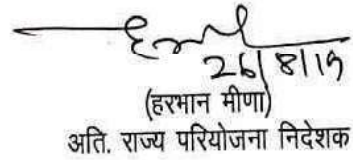 26/8/19
(हरभान मीणा)
अति. राज्य परियोजना निदेशक